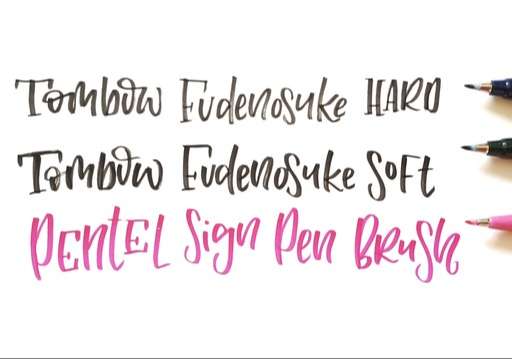 Tombow Fudenosuke HARD
Tombow Fudenosuke Soft
Pentel Sign Pen Brush